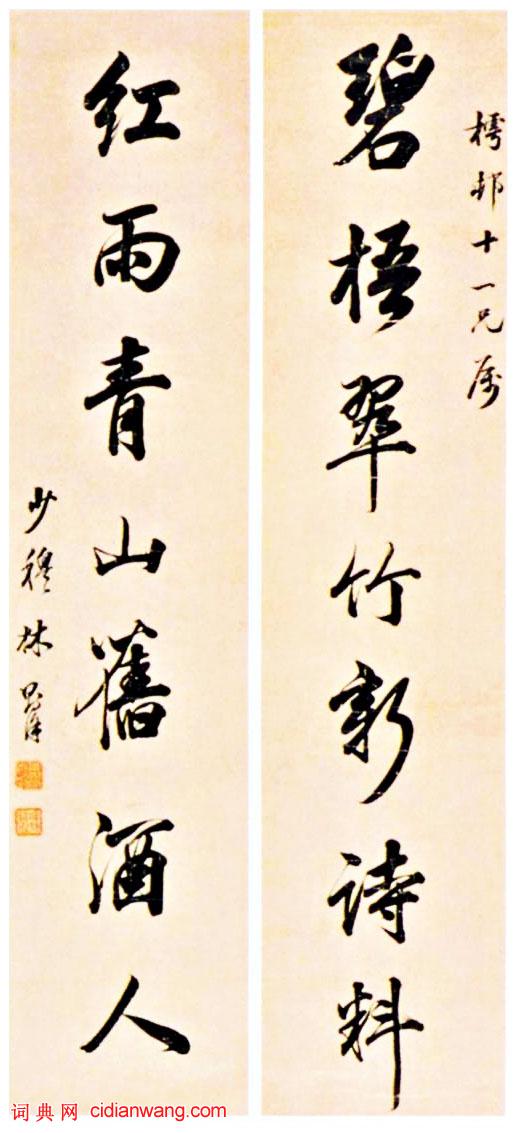 樗邨十一兄属
碧梧翠竹新诗料
红雨青山舊酒人
少穆林则徐
词典网 cidianwang.com